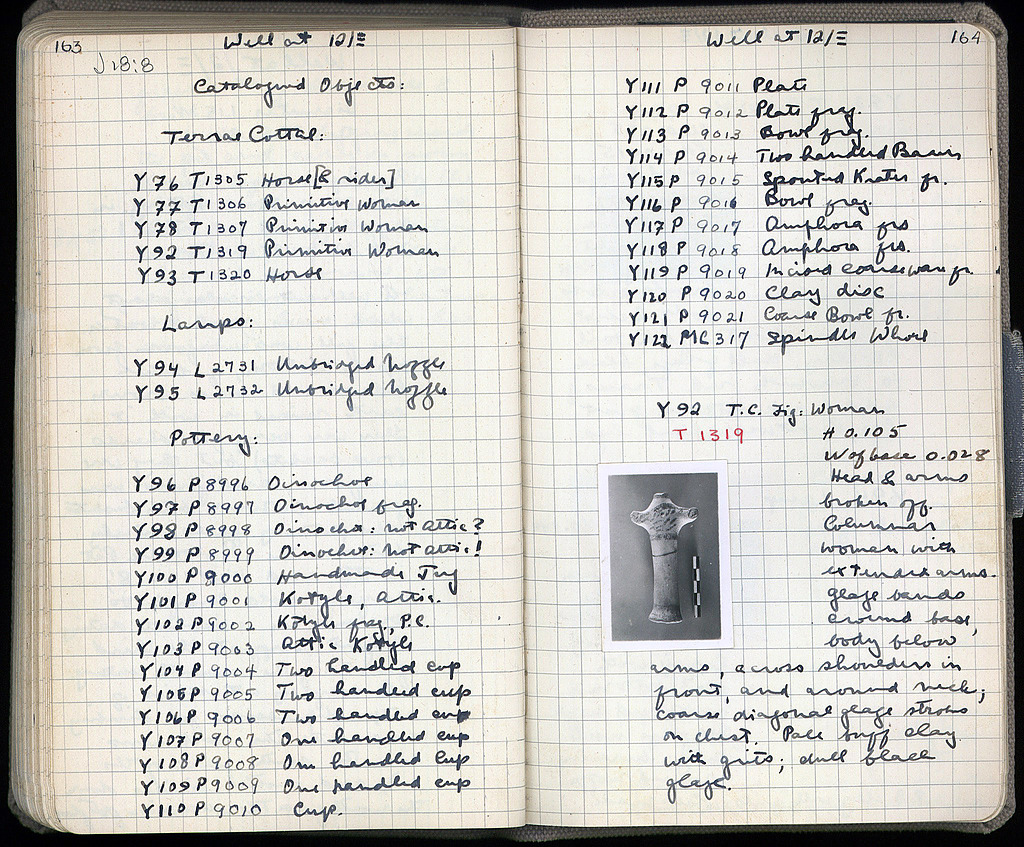 163
Well at 12/Ξ
J 18:8
Catalogued Objects:
Terras Cottas:
Y 76 T 1305 Horse [& rider]
Y 77 T 1306 Primitive Woman
Y 78 T 1307 Primitive Woman
Y 92 T 1319 Primitive Woman
Y 93 T 1320 Horse
Lamps:
Y 94 L 2731 Unbridged Nozzle
Y 95 L 2732 Unbridged Nozzle
Pottery:
Y 96 P 8996 Oinochoe
Y 97 P 8997 Oinochoe frag.
Y 98 P 8998 Oinochoe: not Attic?
Y 99 P 8999 Oinochoe: not Attic!
Y 100 P 9000 Handmade Jug
Y 101 P 9001 Kotyle, Attic.
Y 102 P 9002 Kotyle frag., P.C.
Y 103 P 9003 Attic Kotyle
Y 104 P 9004 Two handled cup
Y 105 P 9005 Two handled cup
Y 106 P 9006 Two handled cup
Y 107 P 9007 One handled cup
Y 108 P 9008 One handled cup
Y 109 P 9009 One handled cup
Y 110 P 9010 Cup.
Well at 12/Ξ
164
Y 111 P 9011 Plate
Y 112 P 9012 Plate frag.
Y 113 P 9013 Bowl frag.
Y 114 P 9014 Two handled Basin
Y 115 P 9015 Spouted Krater fr.
Y 116 P 9016 Bowl frag.
Y 117 P 9017 Amphora frs
Y 118 P 9018 Amphora frs.
Y 119 P 9019 Incised coarse ware fr.
Y 120 P 9020 Clay disc
Y 121 P 9021 Coarse Bowl fr.
Y 122 MC 317 Spindle Whorl
Y 92 T.C. Fig: Woman
T 1319 H 0.105
W of base 0.028
Head & arms
broken off.
Columnar
woman with
extended arms.
glaze bands
around base,
body below
arms, across shoulders in
front, and around neck;
coarse diagonal glaze strokes
on chest. Pale buff clay
with grits; dull black
glaze.